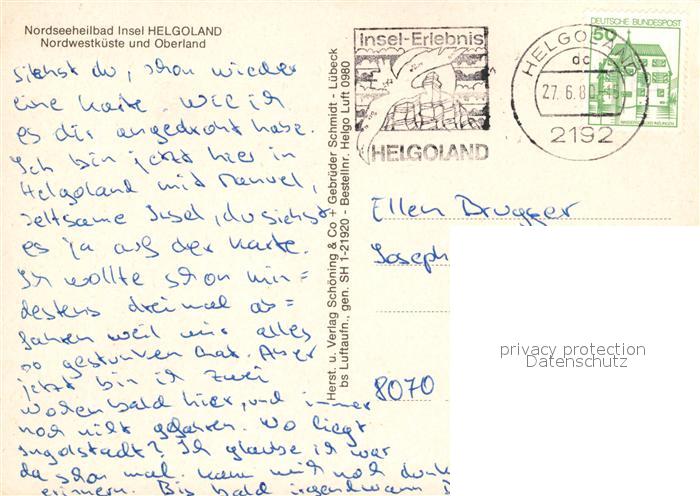 Nordseeheilbad Insel HELGOLAND
Nordwestküste und Oberland
siehst du, schon wieder
eine Karte. Wie ich
es dir angedroht habe.
Ich bin jetzt hier in
Helgoland mit Manuel,
seltsame Insel, du siehst
es ja auf der Karte.
Ich wollte schon min=
destens dreimal ab=
fahren weil mir alles
so gestunken hat. Aber
jetzt bin ich zwei
Wochen bald hier, und immer
noch nicht gefahren. Wo liegt
Ingolstadt? Ich glaube ich war
da schon mal. kann mich noch dunkel
erinnern. Bis bald irgendwann
Herst. u. Verlag Schöning & Co + Gebrüder Schmidt - Lübeck
bs Luftaufn., gen. SH 1-21920 - Bestellnr. Helgo Luft 0980
Insel-Erlebnis
HELGOLAND
HELGOLAND
dc
27.6.80
2192
DEUTSCHE BUNDESPOST
50
Ellen Brugger
Joseph
8070
privacy protection
Datenschutz